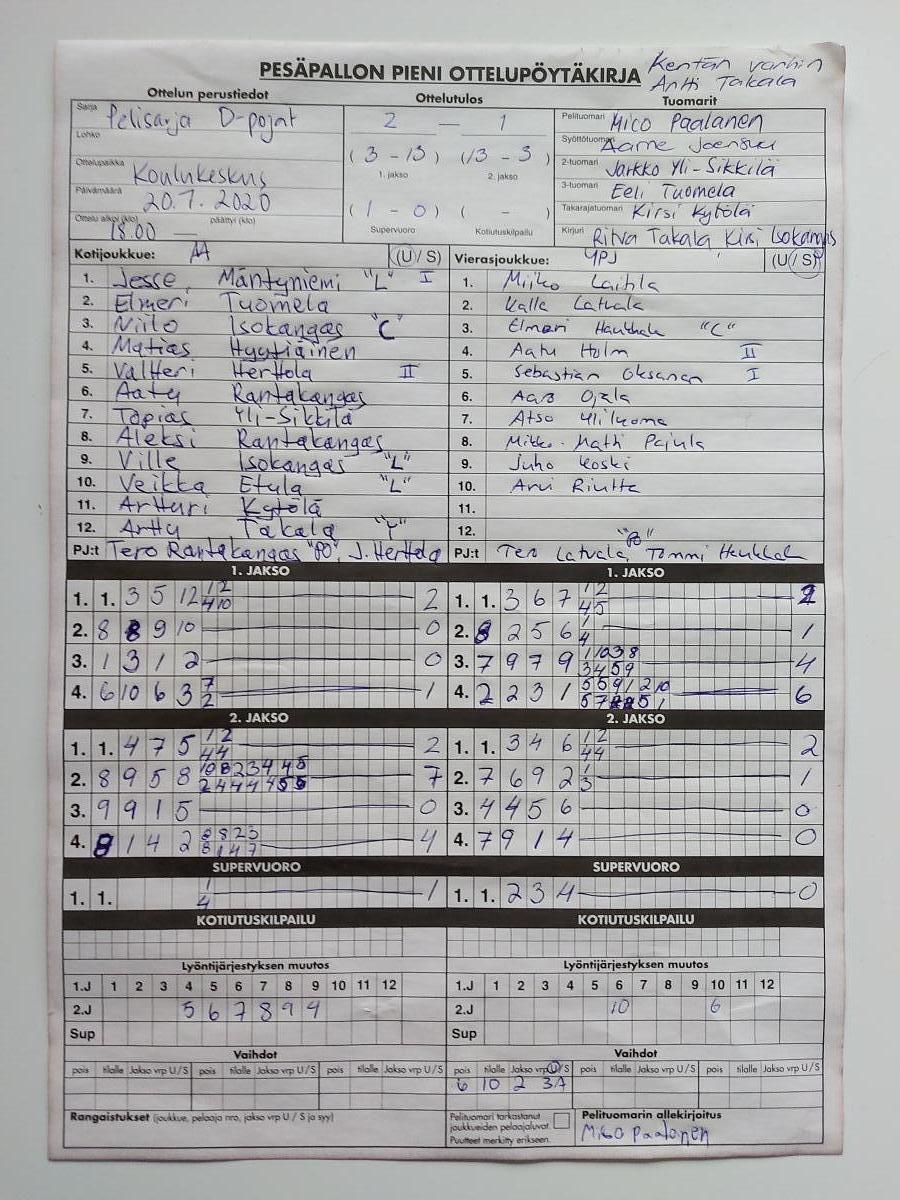 PESÄPALLON PIENI OTTELUPÖYTÄKIRJA
Kentän vanhin
Antti Takala
Ottelun perustiedot
Ottelutulos
Tuomarit
Sarja Pelisarja D-pojat
Lohko
Ottelupaikka Koulukeskus
Päivämäärä 20.7.2020
Ottelu alkoi (klo) 18.00 — päättyi (klo)
2 — 1
(3 - 13) (13 - 3)
1. jakso 2. jakso
(1 - 0) ( - )
Supervuoro Kotiutuskilpailu
Pelituomari Mico Paalanen
Syöttötuomari Aarne Joensuu
2-tuomari Jarkko Yli-Sikkilä
3-tuomari Eeli Tuomela
Takarajatuomari Kirsi Kytölä
Kirjuri Ritva Takala Kirsi Isokangas
Kotijoukkue: AA (U/S)
1. Jesse Mäntyniemi "L" I
2. Elmeri Tuomela
3. Niilo Isokangas "C"
4. Matias Hyytiäinen
5. Valtteri Herttola II
6. Aatu Rantakangas
7. Topias Yli-Sikkilä
8. Aleksi Rantakangas
9. Ville Isokangas "L"
10. Veikka Etula "L"
11. Artturi Kytölä
12. Arttu Takala "Y"
PJ:t Tero Rantakangas "PO", J. Herttola
Vierasjoukkue: YPJ (U/S)
1. Miiko Laitila
2. Kalle Latvala
3. Elmeri Haukkala "C"
4. Aatu Holm II
5. Sebastian Oksanen I
6. Aaro Ojala
7. Atso Yliluoma
8. Mikko-Matti Pajula
9. Juho Koski
10. Arvi Riutta
11.
12.
"PO"
PJ:t Tero Latvala, Tommi Haukkala
1. JAKSO
1. 1. 3 5 12 1 2 2
4 10
2. 8 8 9 10 0
3. 1 3 1 2 0
4. 6 10 6 3 7 1
2
2. JAKSO
1. 1. 4 7 5 1 2 2
4 4
2. 8 9 5 8 7
3. 9 9 1 5 0
4. 8 1 4 2 8 8 2 3 4
8 1 4 7
SUPERVUORO
1. 1. 1 1
4
KOTIUTUSKILPAILU
Lyöntijärjestyksen muutos
1.J 1 2 3 4 5 6 7 8 9 10 11 12
2.J 5 6 7 8 9 4
Sup
Vaihdot
pois tilalle Jakso vrp U/S pois tilalle Jakso vrp U/S pois tilalle Jakso vrp U/S
Rangaistukset (joukkue, pelaaja nro, jakso vrp U / S ja syy)
1. JAKSO
1. 1. 3 6 7 1 2 2
4 5
2. 8 2 5 6 1 1
4
3. 7 9 7 9 1 10 3 8 4
3 4 5 9
4. 2 2 3 1 5 5 9 1 2 10 6
2. JAKSO
1. 1. 3 4 6 1 2 2
4 4
2. 7 6 9 2 1 1
3
3. 4 4 5 6 0
4. 7 9 1 4 0
SUPERVUORO
1. 1. 2 3 4 0
KOTIUTUSKILPAILU
Lyöntijärjestyksen muutos
1.J 1 2 3 4 5 6 7 8 9 10 11 12
2.J 10 6
Sup
Vaihdot
pois tilalle Jakso vrp U/S pois tilalle Jakso vrp U/S pois tilalle Jakso vrp U/S
6 10 2 3A
Pelituomari tarkastanut
joukkueiden pelaajaluvat.
Puutteet merkitty erikseen.
Pelituomarin allekirjoitus
Mico Paalanen